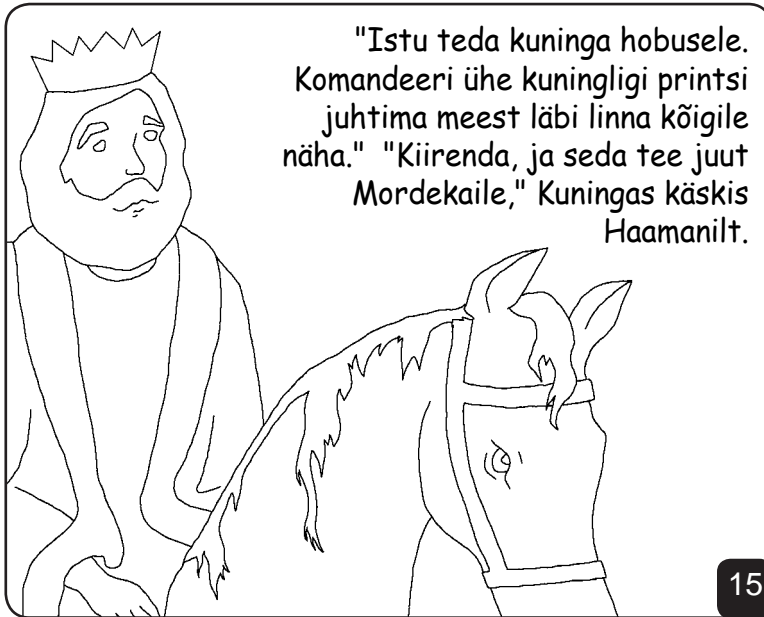 "Istu teda kuninga hobusele.
Komandeeri ühe kuningligi printsi
juhtima meest läbi linna kõigile
näha." "Kiirenda, ja seda tee juut
Mordekaile," Kuningas käskis
Haamanilt.
15